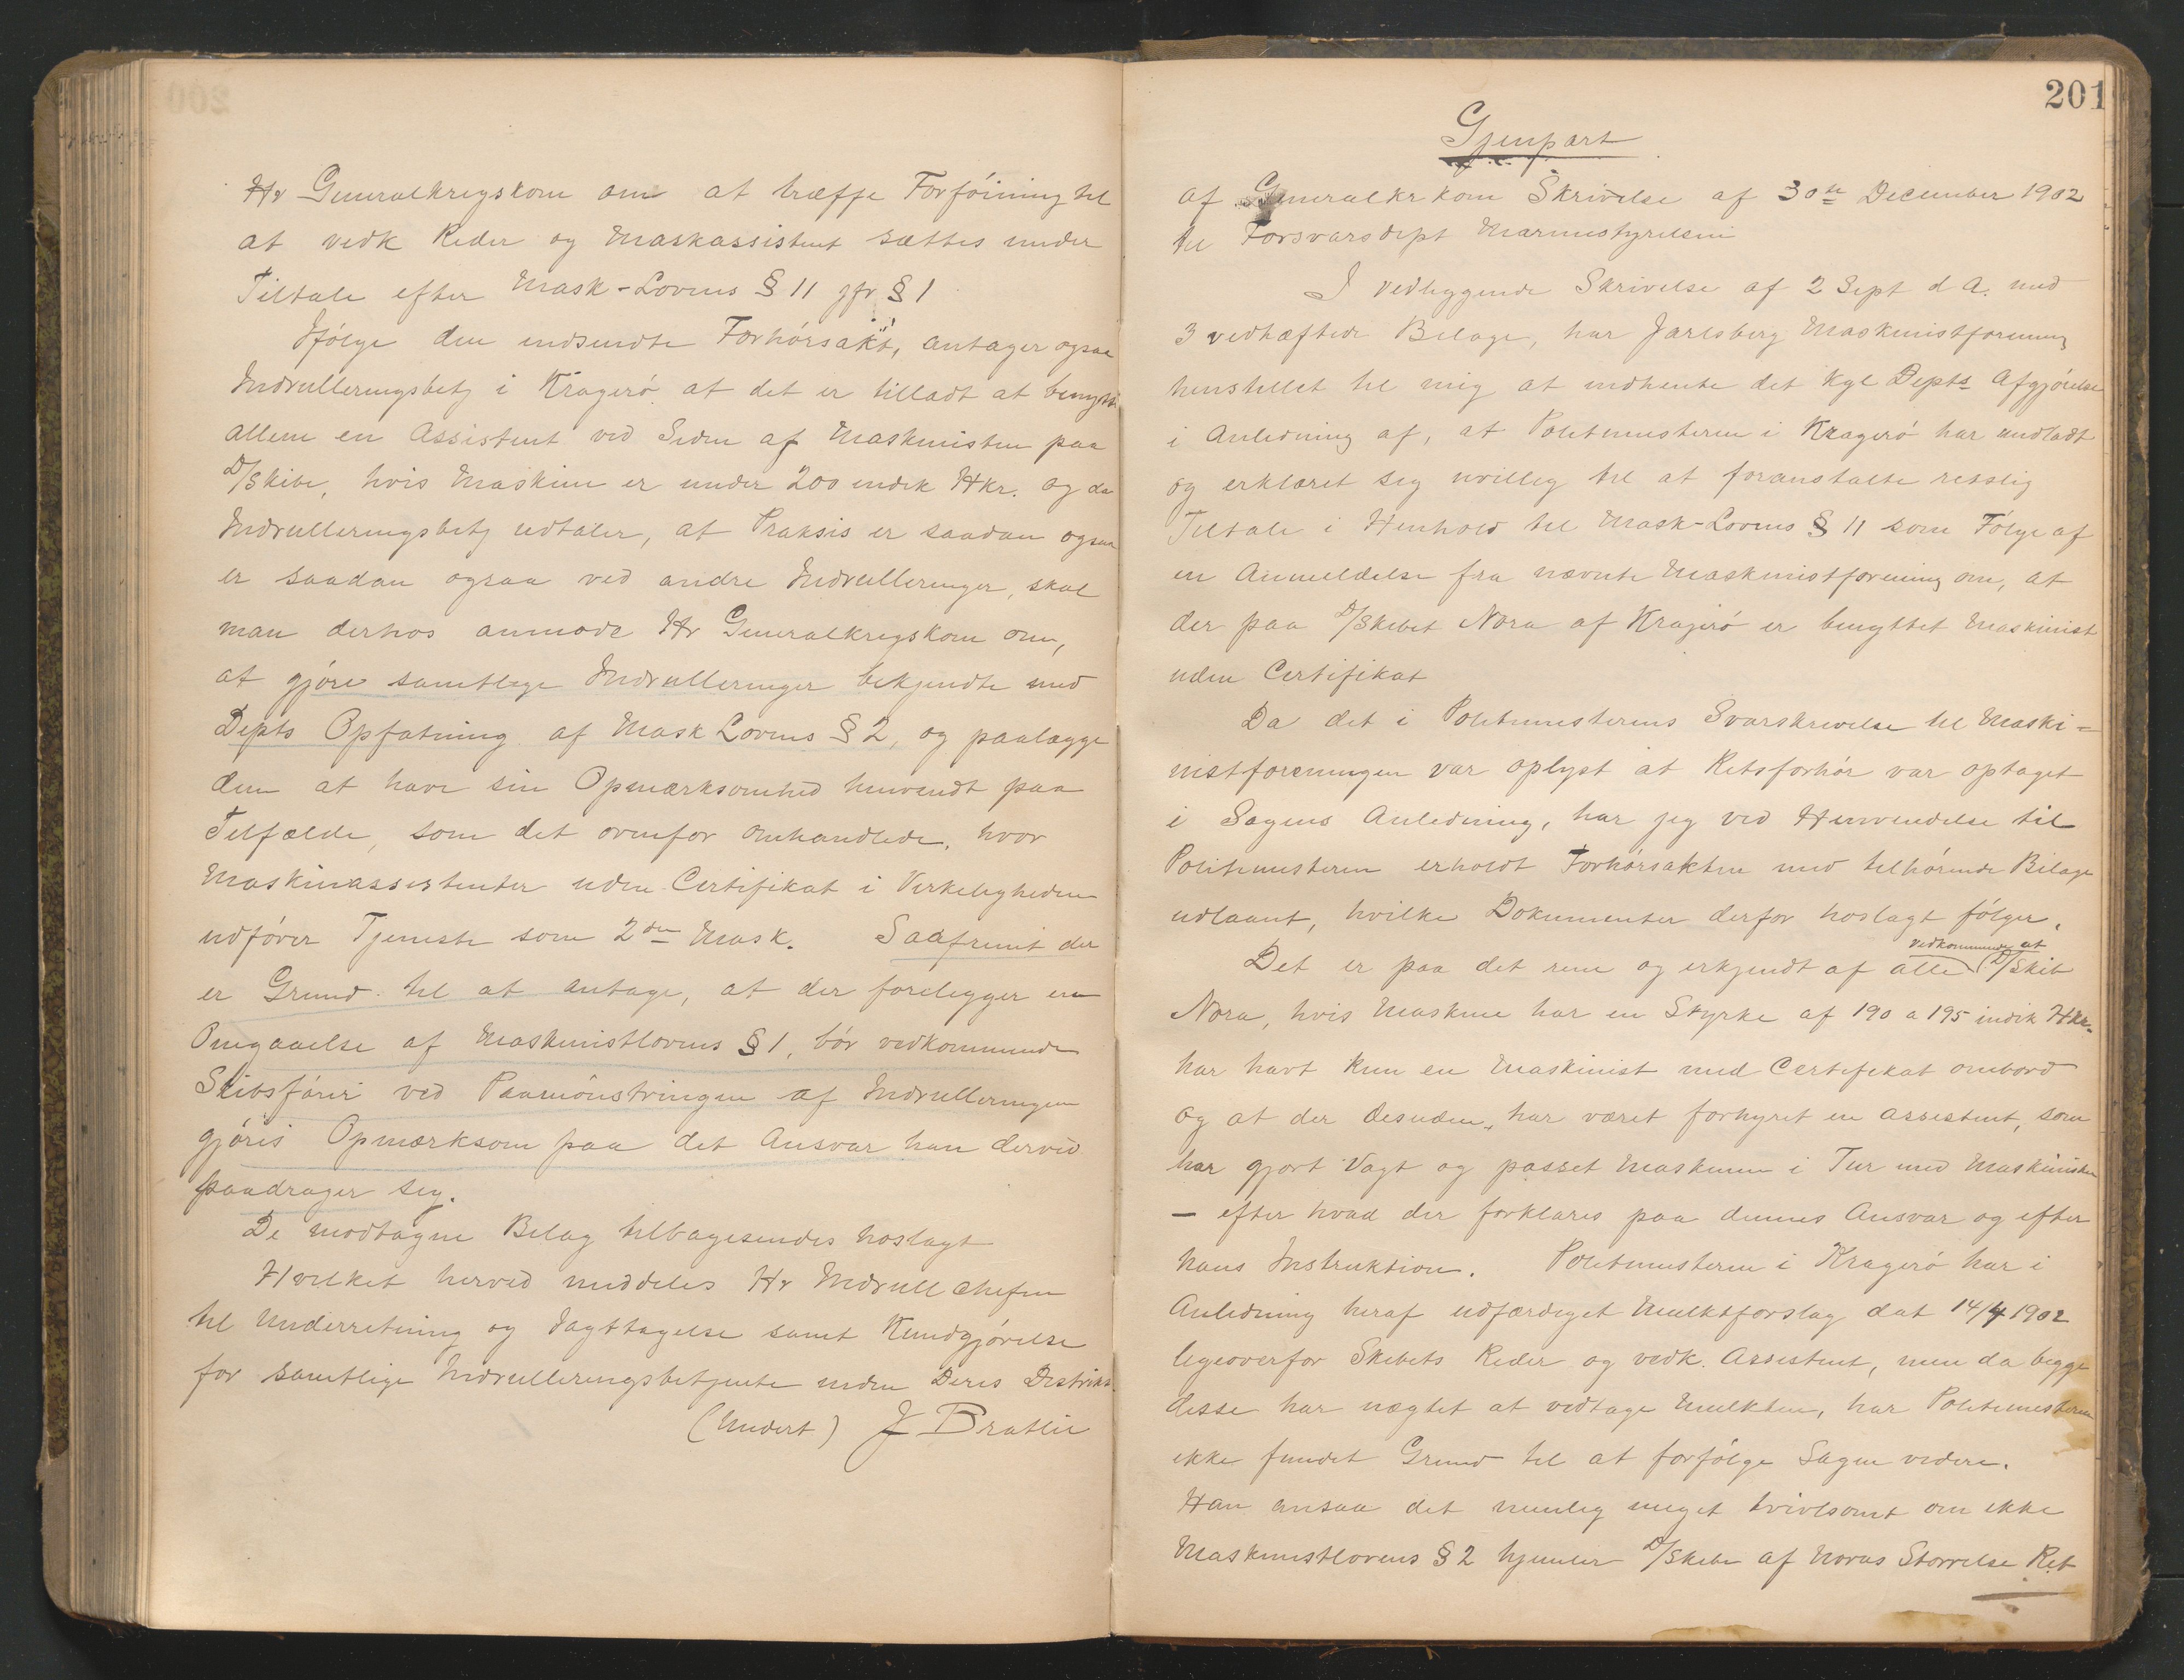 Hr Generalkrigskom om at træffe Forføining til
at vedk Reder og Maskassistent sættes under
Tiltale efter Mask-Lovens § 11 jfr § 1
Ifølge den indsendte Forhørsakt, antager ogsaa
Indrulleringsbetj i Kragerø at det er tilladt at benytte
allene en Assistent ved Siden af Maskinisten paa
D/Skibe, hvis Maskine er under 200 indik Hkr. og da
Indrulleringsbetj udtaler, at Praksis er saadan ogsaa
er saadan ogsaa ved andre Indrulleringer, skal
man derhos anmode Hr Generalkrigskom om,
at gjøre samtlige Indrulleringer bekjendte med
Depts Opfatning af Mask Lovens § 2, og paalægge
dem at have sin Opmærksomhed henvendt paa
Tilfælde, som det ovenfor omhandlede, hvor
Maskinassistenter uden Certifikat i Virkeligheden
udfører Tjeneste som 2den Mask. Saafremt der
er Grund til at antage, at der foreligger en
Omgaaelse af Maskinistlovens § 1, bør vedkommende
Skibsfører ved Paamønstringen af Indrulleringen
gjøres Opmærksom paa det Ansvar han derved
paadrager sig.
De modtagne Bilag tilbagesendes hoslagt
Hvilket herved meddeles Hr Indrull chefen
til Underretning og Iagttagelse samt Kundgjørelse
for samtlige Indrulleringsbetjente inden Deres Distrikt.
(Undert) J Bratlie
201
Gjenpart
af Generalkrkom Skrivelse af 30te December 1902
til Forsvarsdept Marinestyrelsen
I vedliggende Skrivelse af 2 Sept d A. med
3 vedhæftede Bilage, har Jarlsberg Maskinistforening
henstillet til mig at indhente det Kgl Depts Afgjørelse
i Anledning af, at Politimesteren i Kragerø har undladt
og erklæret sig uvillig til at foranstalte retslig
Tiltale i Henhold til Mask-Lovens § 11 som Følge af
en Anmeldelse fra nævnte Maskinistforening om, at
der paa D/Skibet Nora af Kragerø er benyttet Maskinist
uden Certifikat
Da det i Politimesterens Svarskrivelse til Maski=
nistforeningen var oplyst at Retsforhør var optaget
i Sagens Anledning, har jeg ved Henvendelse til
Politimesteren erholdt Forhørsakten med tilhørende Bilage
udlaant, hvilke Dokumenter derfor hoslagt følger.
vedkommende at
Det er paa det rene og erkjendt af alle D/Skib
Nora, hvis Maskine har en Styrke af 190 a 195 indik Hkr.
har havt kun en Maskinist med Certifikat ombord
og at der desuden har været forhyret en Assistent, som
har gjort Vagt og passet Maskinen i Tur med Maskinisten
– efter hvad der forklares paa dennes Ansvar og efter
hans Instruktion. Politimesteren i Kragerø har i
Anledning heraf udfærdiget Mulktforslag dat 14/4 1902
ligeoverfor Skibets Reder og vedk. Assistent, men da begge
disse har nægtet at vedtage Mulkten, har Politimesteren
ikke fundet Grund til at forfølge Sagen videre.
Han ansaa det nemlig meget tvivlsomt om ikke
Maskinistlovens § 2 hjemler D/Skibe af Noras Størrelse Ret